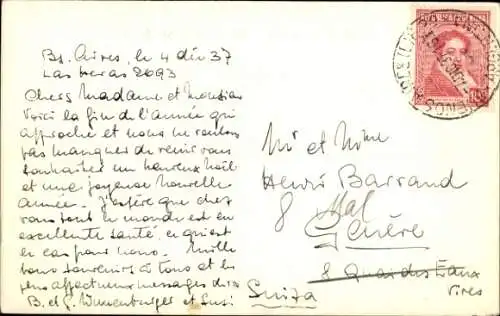 Bs. Aires, le 4 déc 37
Las Heras 2093
Chers Madame et Monsieur
Voici la fin de l'année qui
approche et nous ne voulons
pas manquer de venir vous
souhaiter un heureux Noël
et une joyeuse nouvelle
année. J'espère que chez
vous tout le monde est en
excellente santé, ce qui est
le cas pour nous. Mille
bons souvenirs à tous et les
plus affectueux messages de
B. et G. Wunenburger et Susi
Mr et Mme
Henri Barrand
8
Genève
8 Quai des Eaux
Vives
Suiza